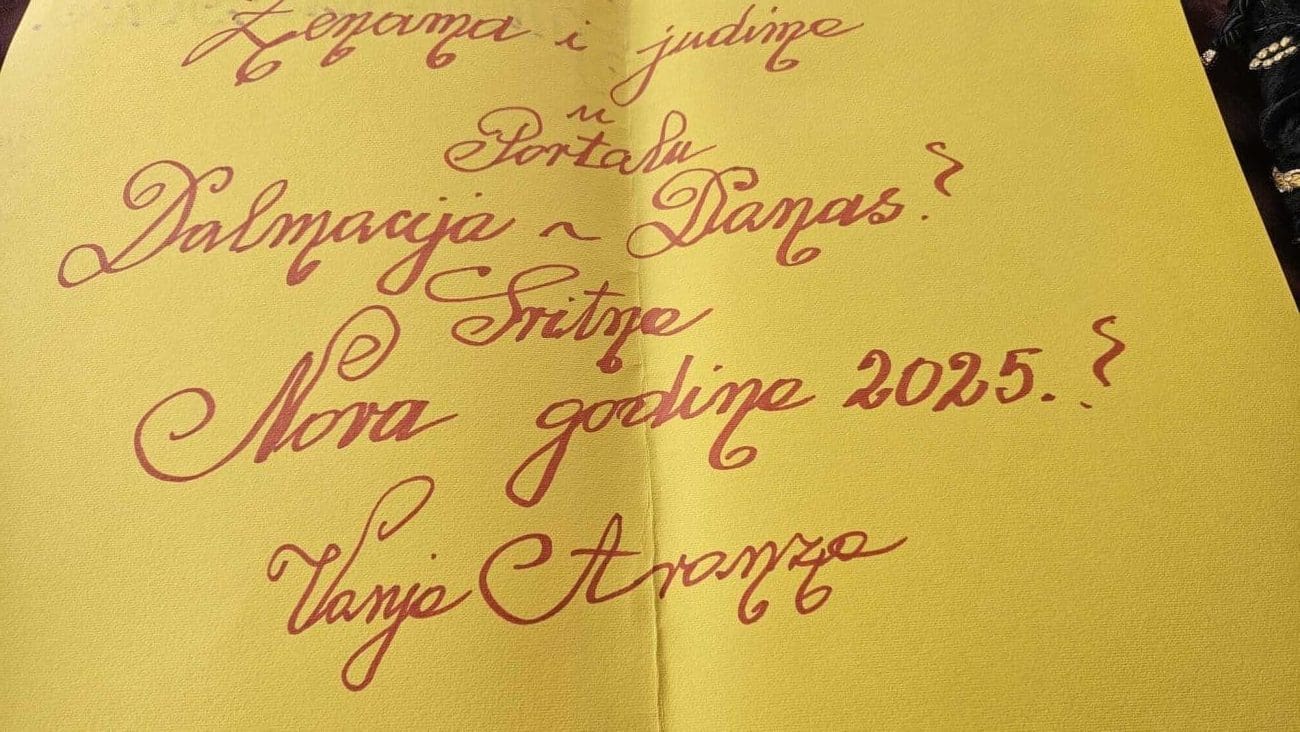 Ženama i judima
u
Portalu
Dalmacija ~ Danas!
Sritna
Nova godina 2025.!
Vanja Aranza